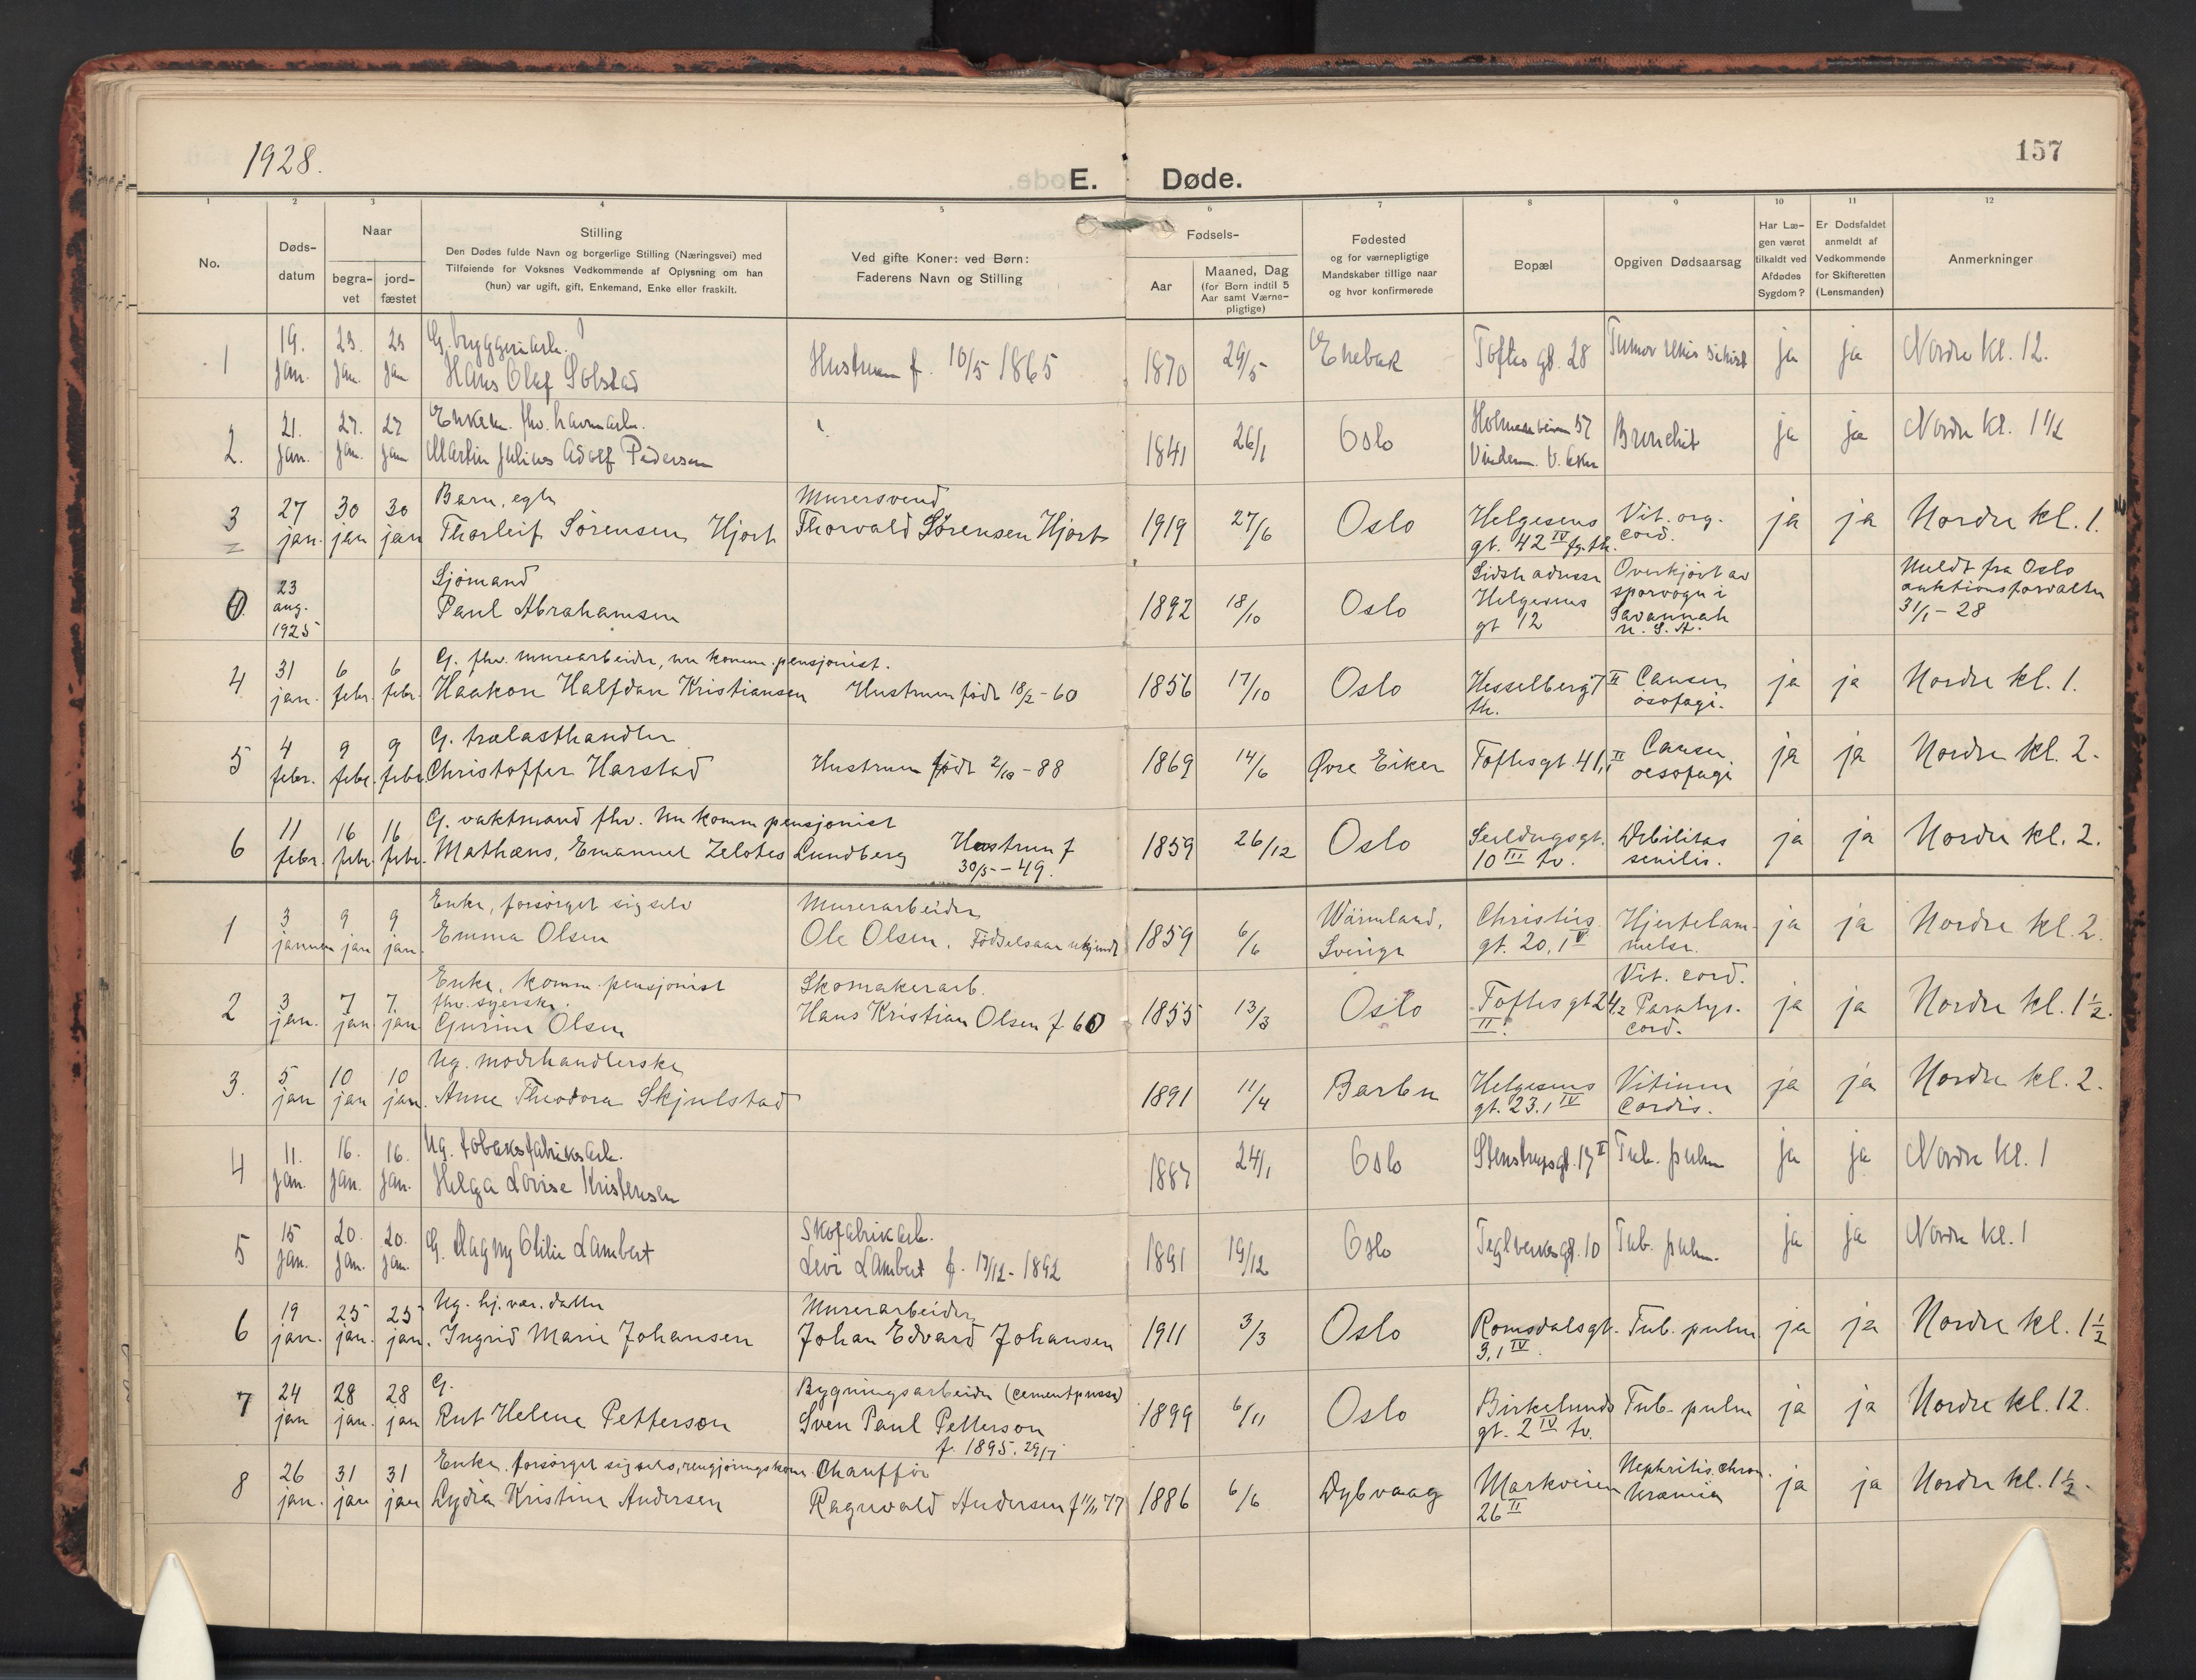 1928.
157
E. Døde.
1 2 3 4 5 6 7 8 9 10 11 12
No.
Døds-
datum
Naar
begra-
vet
jord-
fæstet
Stilling
Den Dødes fulde Navn og borgerlige Stilling (Næringsvei) med
Tilføiende for Voksnes Vedkommende af Oplysning om han
(hun) var ugift, gift, Enkemand, Enke eller fraskilt.
Ved gifte Koner: ved Børn:
Faderens Navn og Stilling
Fødsels-
Aar
Maaned, Dag
(for Børn indtil 5
Aar samt Værne-
pligtige)
Fødested
og for værnepligtige
Mandskaber tillige naar
og hvor konfirmerede
Bopæl
Opgiven Dødsaarsag
Har Læ-
gen været
tilkaldt ved
Afdødes
Sygdom?
Er Dødsfaldet
anmeldt af
Vedkommende
for Skifteretten
(Lensmanden)
Anmerkninger
1 19. Jan. 23. Jan. 23 Jan G. bryggeriarb.
Hans Olaf Solstad Hustruen f. 10/5 1865 1870 29/5 Enebak Toftes gt. 28 Tumor ja ja Nordre kl. 12.
2. 21. Jan. 27. Jan. 27 Jan Enkem. fhv. havnearb.
Martin Julius Adolf Pedersen 1841 26/1 Oslo Holmenveien 57
Vinderen. V. Aker Bronchit ja ja Nordre kl. 1 1/2
3 27 jan. 30 jan 30 jan Barn, egte
Thorleif Sørensen Hjort Murersvend
Thorvald Sørensen Hjort 1919 27/6 Oslo Helgesens
gt. 42 IV fg. th. Vit. org.
cord. ja ja Nordre kl. 1.
0. 23
aug.
1925 Sjömand
Paul Abrahamsen 1892 18/10 Oslo Sidste adresse
Helgesens
gt 12 Overkjört av
sporvogn i
Savannah
U. S. A. Meldt fra Oslo
auktionsforvalter
31/1 - 28
4 31 jan. 6 febr. 6 febr. G. fhv. murearbeider, nu komm. pensjonist.
Haakon Halfdan Kristiansen Hustruen født 18/2 - 60 1856 17/10 Oslo Hesselbergs 7 II
th. Cancer
øsofagi. ja ja Nordre kl. 1.
5 4 febr. 9 febr. 9 febr. G. trælasthandler
Christoffer Harstad Hustruen født 2/10 - 88 1869 14/6 Øvre Eiker Toftesgt. 41, II Cancer
oesofagi ja ja Nordre kl. 2.
6 11 febr. 16 febr. 16 febr. G. vaktmand fhv. nu komm pensjonist
Mathæus, Emanuel Zelotes Lundberg Hustruen f
30/5 - 49. 1859 26/12 Oslo Seildugsgt.
10 III tv. Debilitas
senilis. ja ja Nordre kl. 2.
1 3 januar 9 jan 9 jan. Enke, forsörget sig selv
Emma Olsen Murerarbeider
Ole Olsen. Födselsaar ukjendt 1859 6/6 Wärmland,
Sverige Christies
gt. 20, 1 V Hjertelam-
melse. ja ja Nordre kl. 2.
2 3 jan. 7 jan 7. jan Enke, komm. pensjonist
fhv. syerske.
Gurine Olsen Skomakerarb.
Hans Kristian Olsen f 60 1855 13/3 Oslo Toftesgt 24,2
II. Vit. cord.
Paralys.
cord. ja ja Nordre kl. 1 1/2.
3. 5 jan 10 jan 10 jan. Ug. motehandlerske
Anne Theodora Skjulstad 1891 11/4 Barbu Helgesens
gt. 23. 1 IV Vitium
Cordis. ja ja Nordre kl. 2.
4 11. Jan. 16. Jan. 16. Jan. Ug. tobaksfabrikarb.
Helga Lovise Kristensen 1887 24/1 Oslo Stenstrupsgt. 17 II Tub. pulm ja ja Nordre kl. 1
5 15 Jan. 20. Jan. 20. Jan. G. Dagny Otilie Lambert Skofabrikarb.
Levi Lambert f. 17/12 - 1892 1891 19/12 Oslo Teglverksgt. 10 Tub. pulm. ja ja Nordre kl. 1
6 19 jan. 25 jan. 25 jan. Ug. hj. vær. datter
Ingrid Marie Johansen Murerarbeider
Johan Edvard Johansen 1911 3/3 Oslo Romsdalsgt.
3, 1 IV. Tub. pulm ja ja Nordre kl. 1 1/2
7 24 jan 28 jan. 28 jan G.
Rut Helene Petterson Bygningsarbeider (cementpusser)
Sven Paul Petterson
f. 1895. 29/7 1899 6/11 Oslo Birkelunds
gt. 2 IV tv. Tub. pulm ja ja Nordre kl. 12.
8 26 jan. 31 jan 31 jan Enke. forsörget sig selv, rengjøringskone.
Lydia Kristine Andersen Chaufför
Ragnvald Andersen f 11/11 77 1886 6/6 Dybvaag Markveien
26 II Nephritis chron.
Uræmia ja ja Nordre kl. 1 1/2.